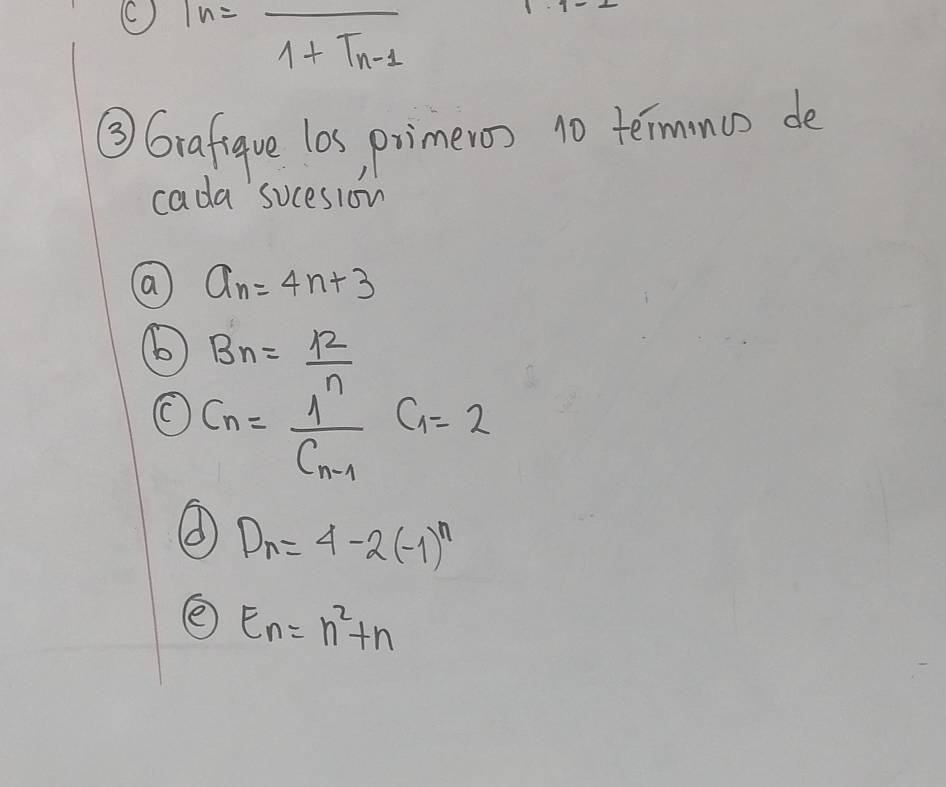 ⓒ Tn=
1 + Tn-1
③ Grafique los primeros 10 términos de
cada sucesión
ⓐ an = 4n+3
ⓑ Bn = 12/n
ⓒ Cn = 1/Cn-1 C1 = 2
ⓓ Dn = 4-2(-1)^n
ⓔ En = n²+n